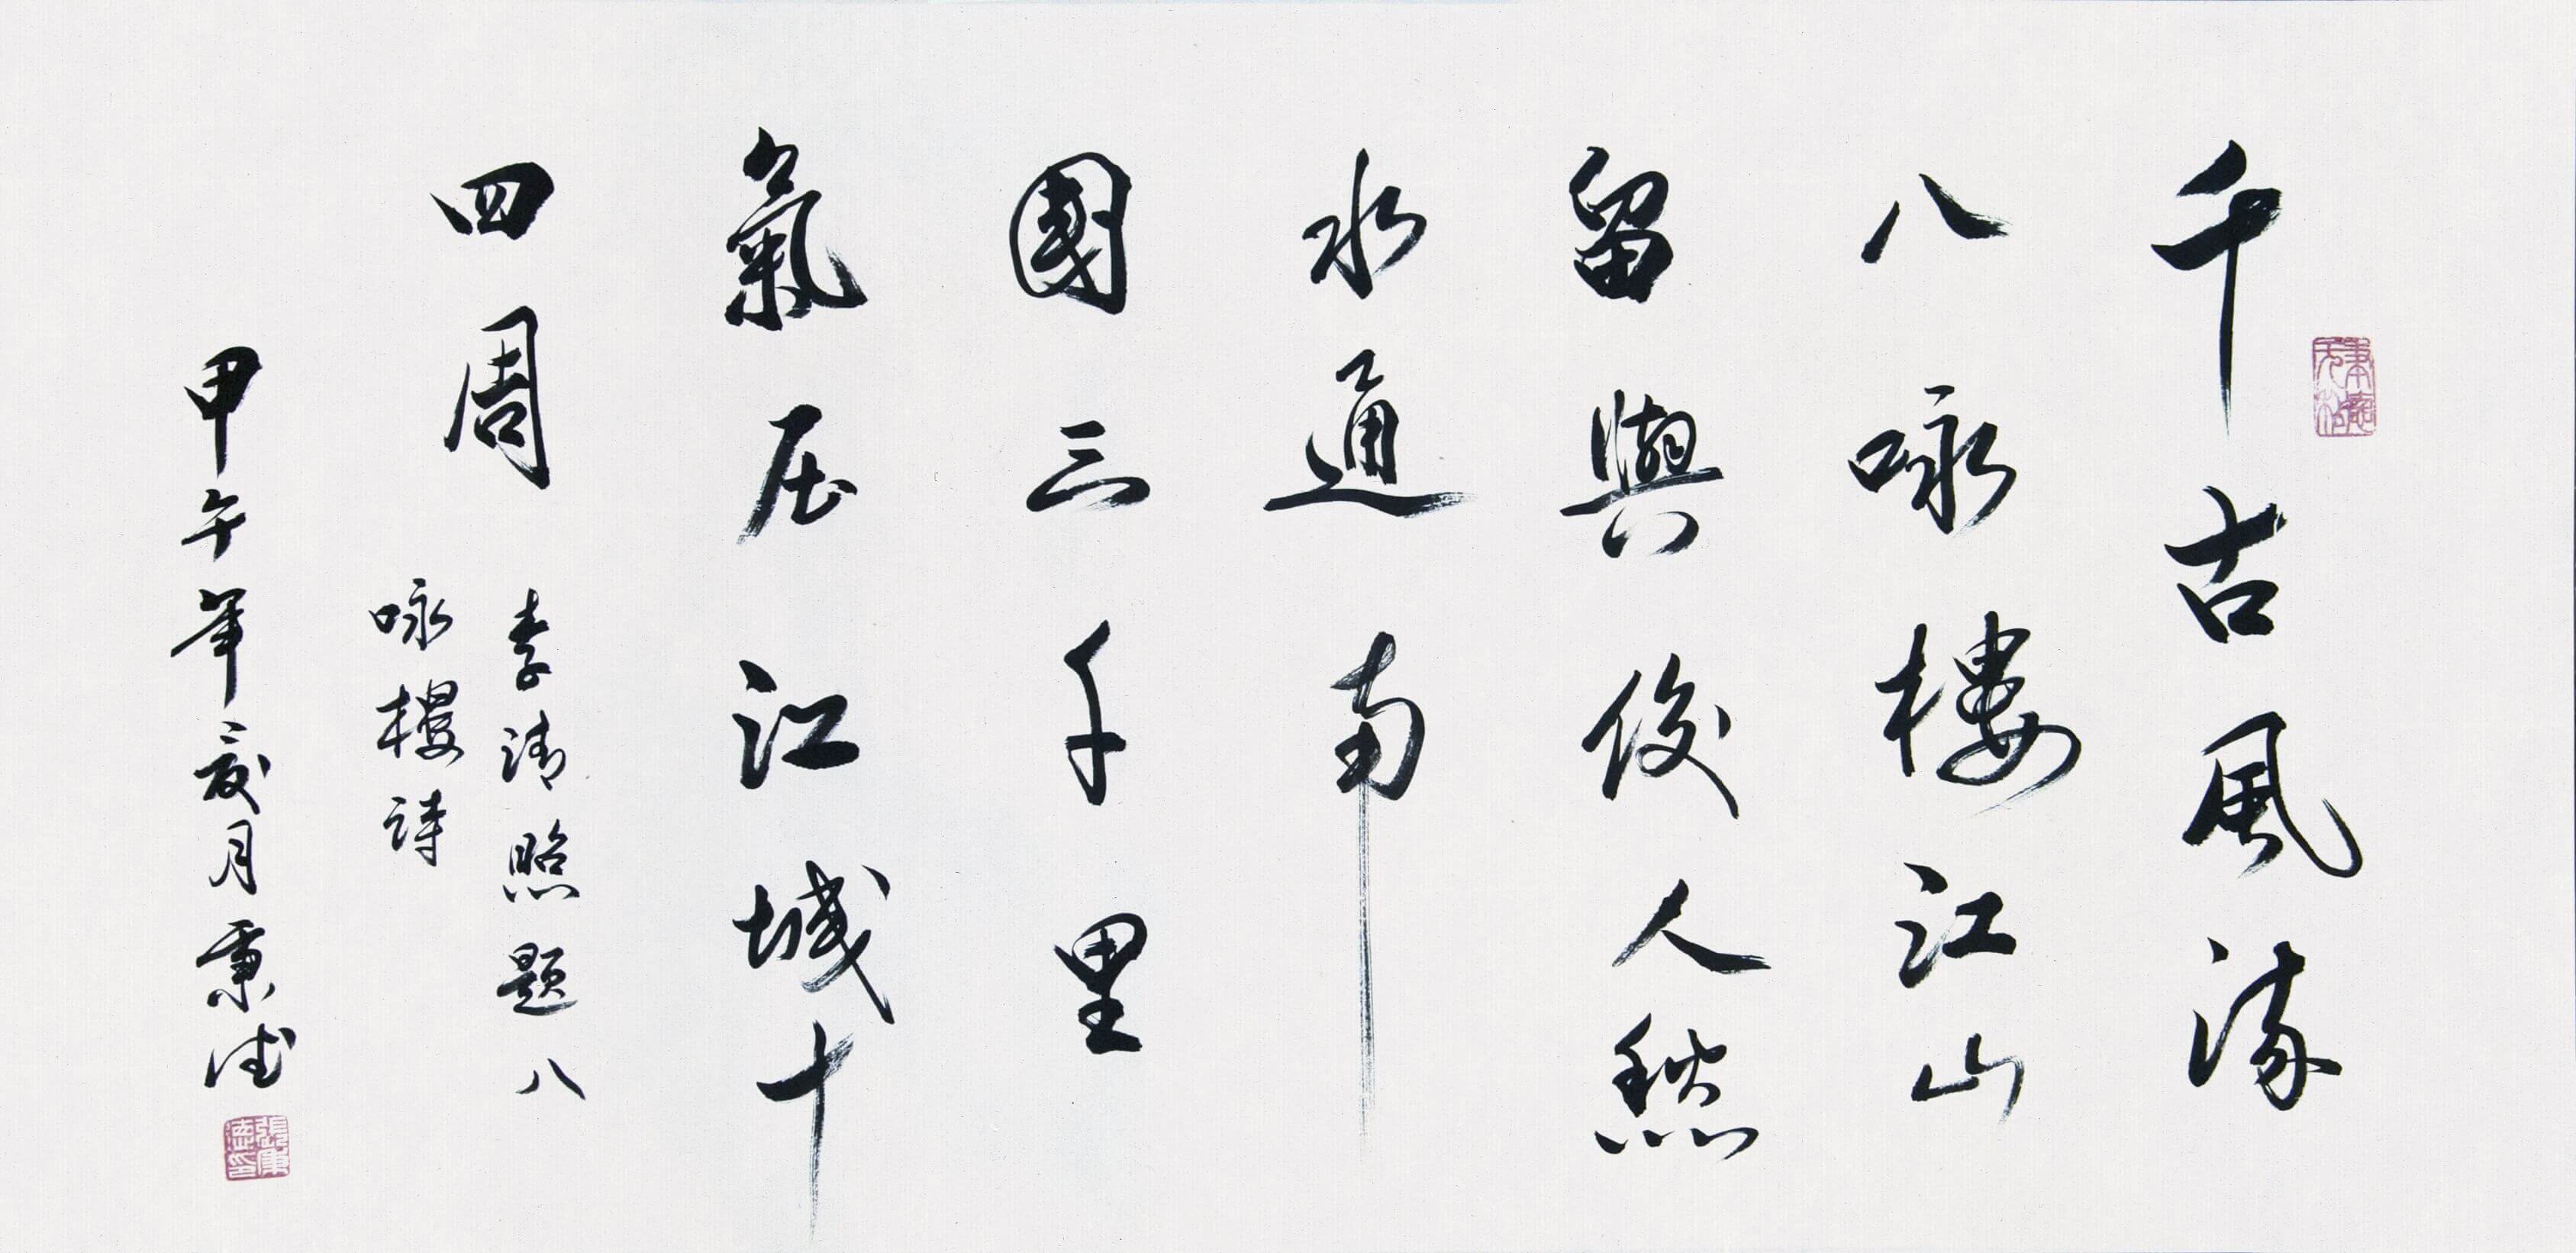 千古風流
八咏樓江山
留與後人愁
水通南
國三千里
氣压江城十
四周
李清照题八
咏樓詩
甲午年夏月秉德
張秉德印